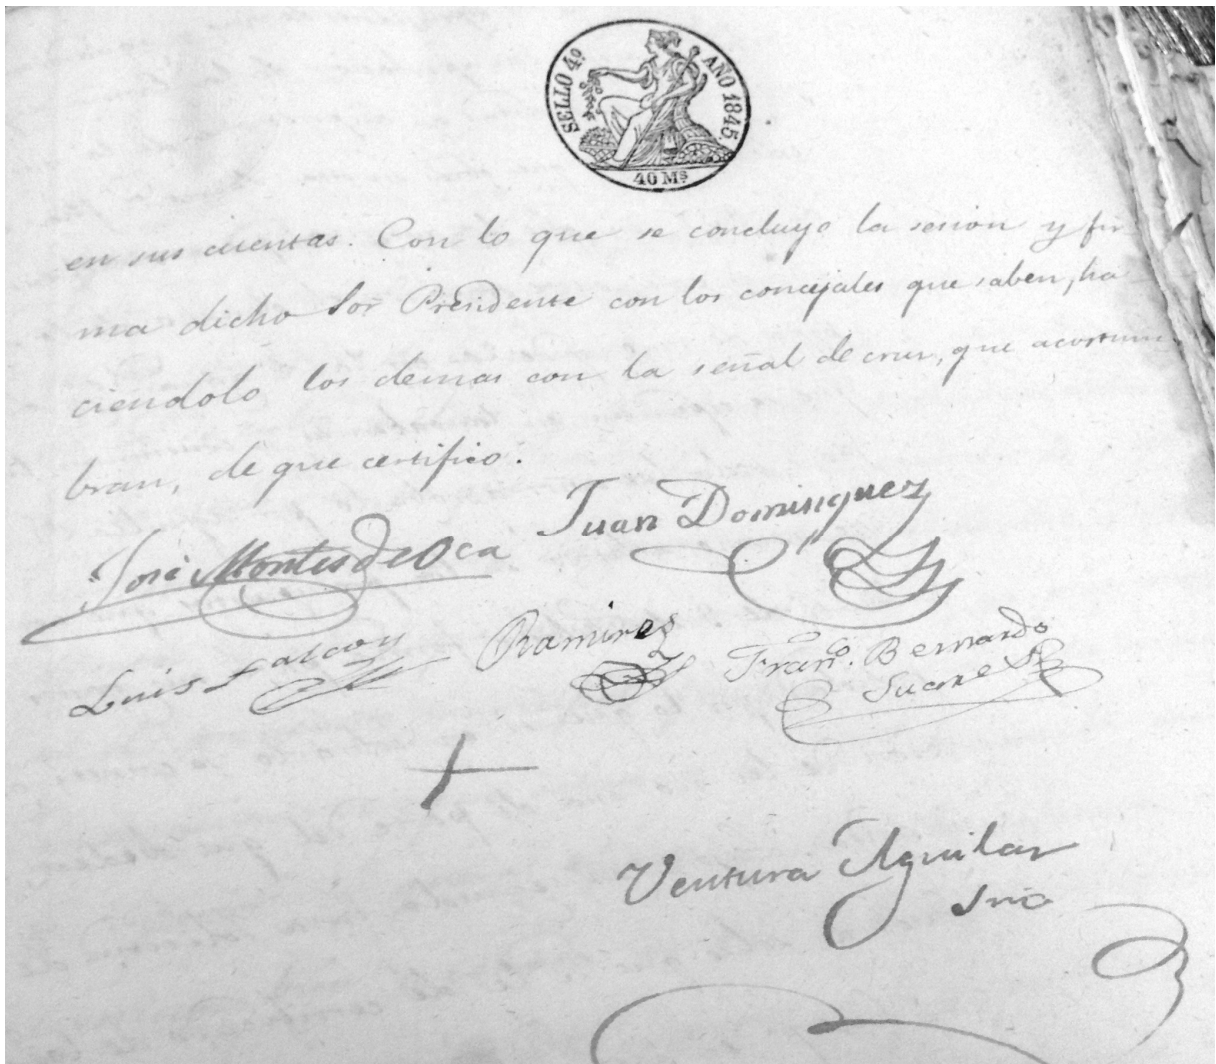 SELLO 4º AÑO 1845.
40 Ms
en sus cuentas. Con lo que se concluyo la sesion y fir
ma dicho Sor Presidente con los concejales que saben, ha
ciendolo los demas con la señal de cruz, que acostum
bran, de que certifico.
José Montesdeoca Juan Dominguez
Luis Falcon Ramires Franco. Bernardo
Suarez
Ventura Aguilar
Srio